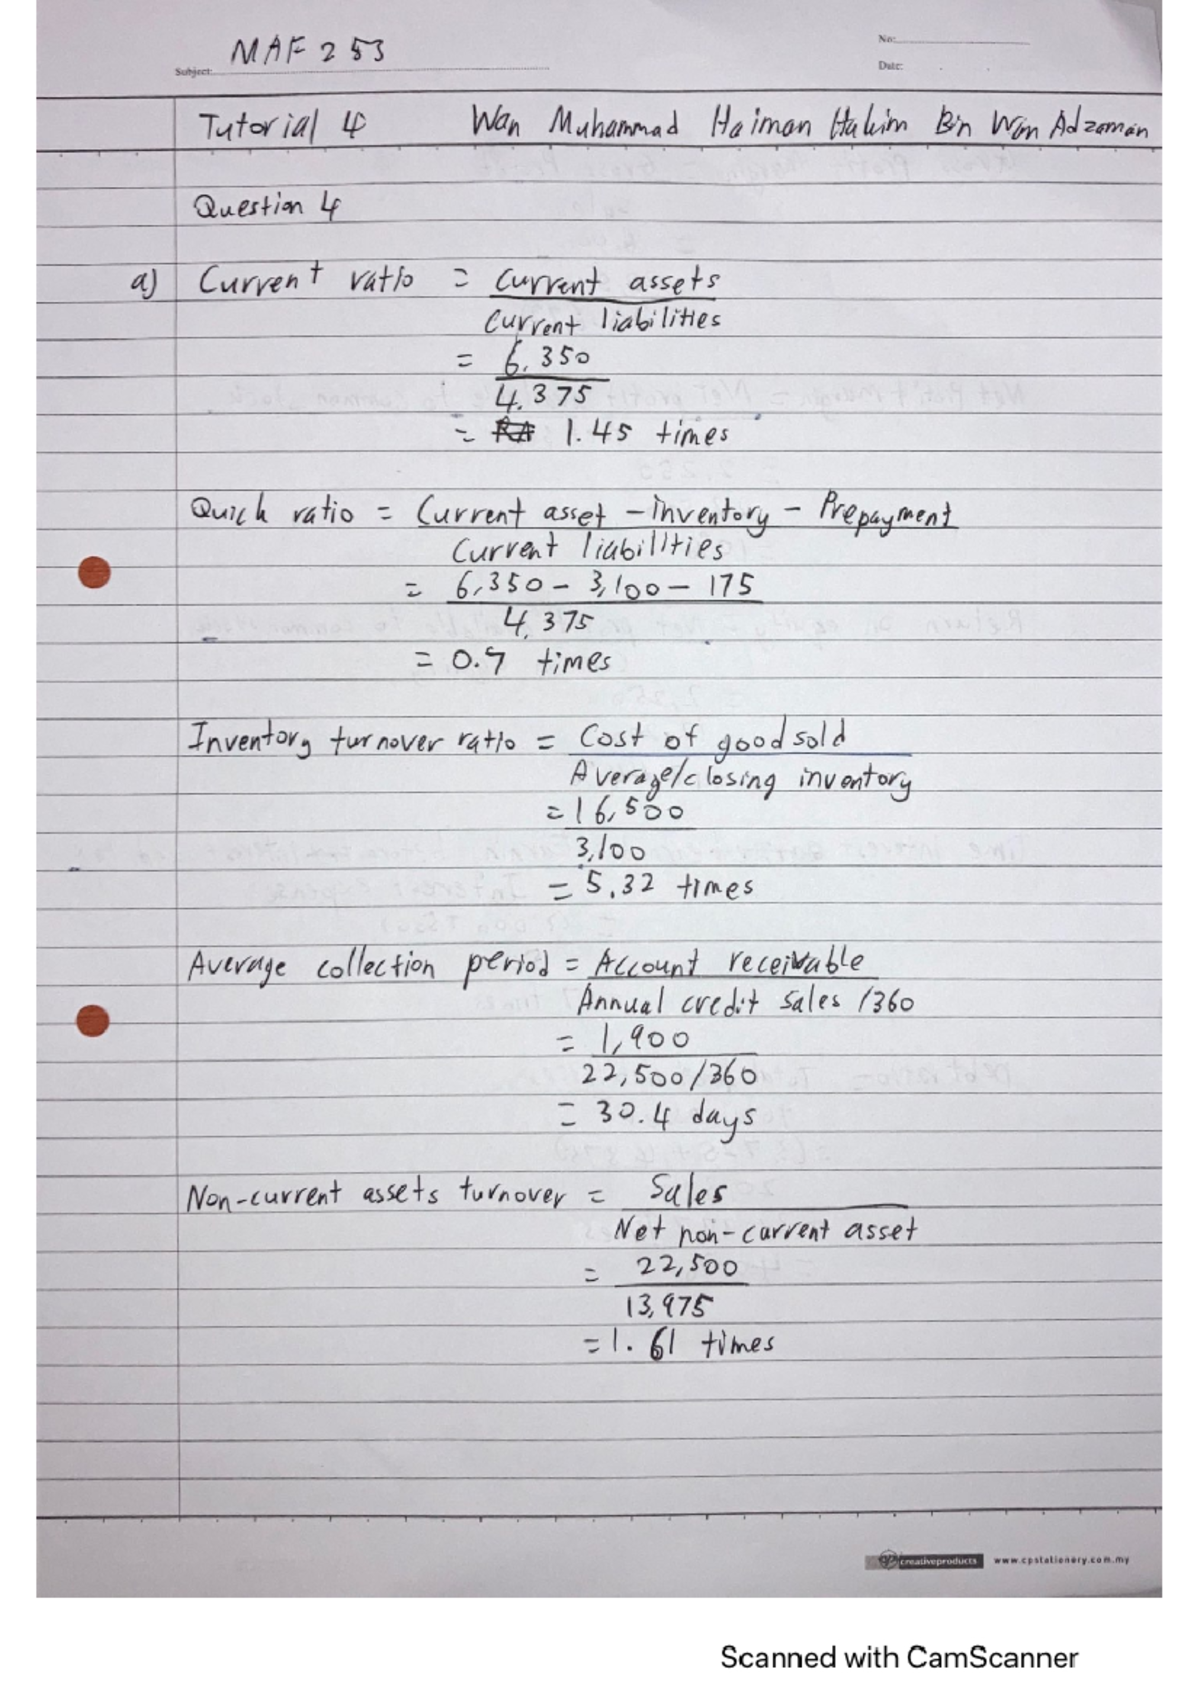 MAF 253
Subject:
No:
Date:
Tutorial 4 Wan Muhammad Haiman Hakim Bin Wan Adzaman
Question 4
a) Current ratio = Current assets
Current liabilities
= 6,350
4,375
= 1.45 times
Quick ratio = Current asset - inventory - Prepayment
Current liabilities
= 6,350 - 3,100 - 175
4,375
= 0.7 times
Inventory turnover ratio = Cost of good sold
Average/closing inventory
= 16,500
3,100
= 5.32 times
Average collection period = Account receivable
Annual credit sales /360
= 1,900
22,500/360
= 30.4 days
Non-current assets turnover = Sales
Net non-current asset
= 22,500
13,975
= 1.61 times
creativeproducts www.cpstationery.com.my
Scanned with CamScanner